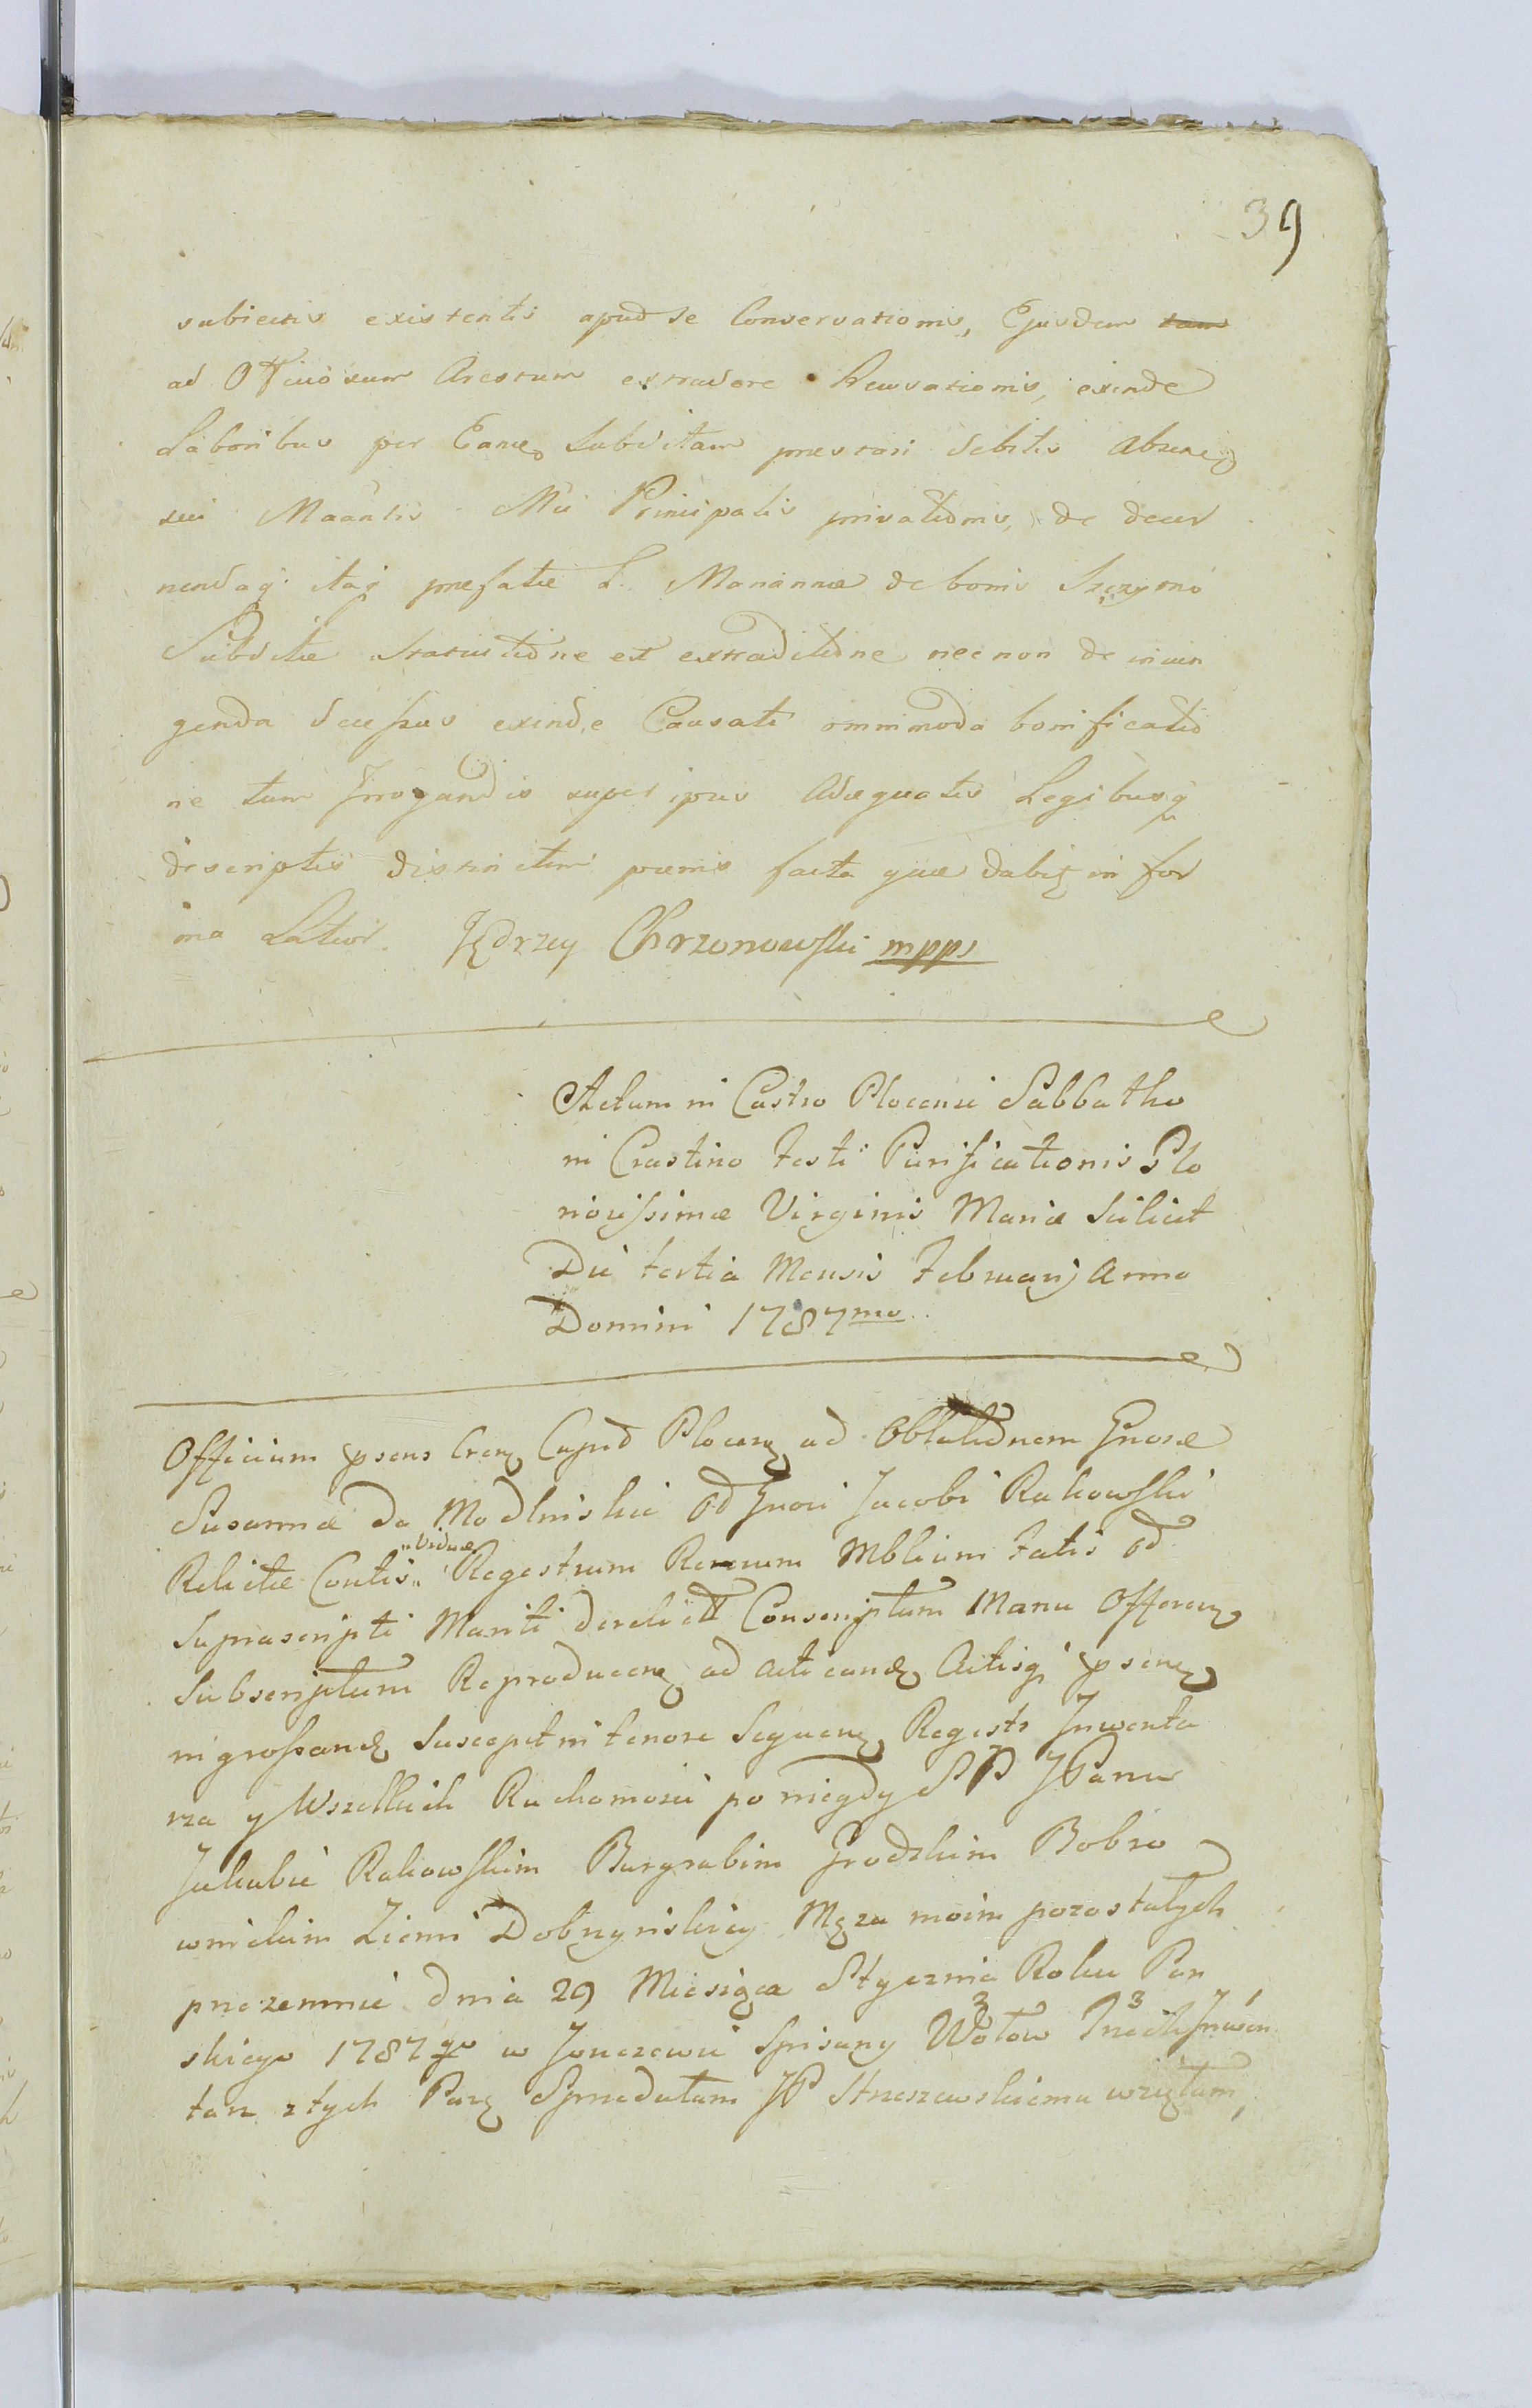 39
subiectis existentis apud se Conservationis, Ejusdem
ad Officiosum Arestum extradere Recusationis, exinde
Laboribus per Eand Subditam prestari debitis
sui Principalis privationis, de decer
nendaq itaq prefatæ L. Mariannæ de bonis Szczymo
Subditæ Statuitione et extraditione nec non de iniun
genda exinde Causati omnimoda bonificatio
ne tum Irrogandis super ipsus Adæquatis Legibusq
descriptis districtim pœnis facta quæ dabitę in for
ma Latiori. Jędrzey Chrzonowski mpps
Actum in Castro Plocensi Sabbatho
in Crastino Festi Purificationis Glo
riosissimæ Virginis Mariæ Scilicet
Die tertia Mensis Februarij Anno
Domini 1787mo
Officium psens Cren Capnd Plocen ad Oblationem Gnosæ
Susannæ de Modlinskie Gnosi Jacobi Rakowski
Relictæ Contis "Viduæ" Regestrum Rerum Mblium Fatis
Suprascripti Mariti derelictt Conscriptum Manu Offeren
Subscriptum Reproducen ad Acticand Actisq psen
ingrossand Suscepit in tenore Sequen Regestr Inwenta
rza y Wszelkich Ruchomosci po niegdy SP JPanu
Jakubie Rakowskim Burgrabim Grodzkim Bobro
wnickim Ziemi Dobrzynskiey Męzu moim pozostałych
przezemnie dnia 29 Miesiąca Stycznia Roku Pan
skiego 1787go w Jonczewie Spisany 2 Wołow 3 Trzech 1 Inwen
tarz z tych Parę Sprzedałam JP Strzeszewskiemu wzięłam,